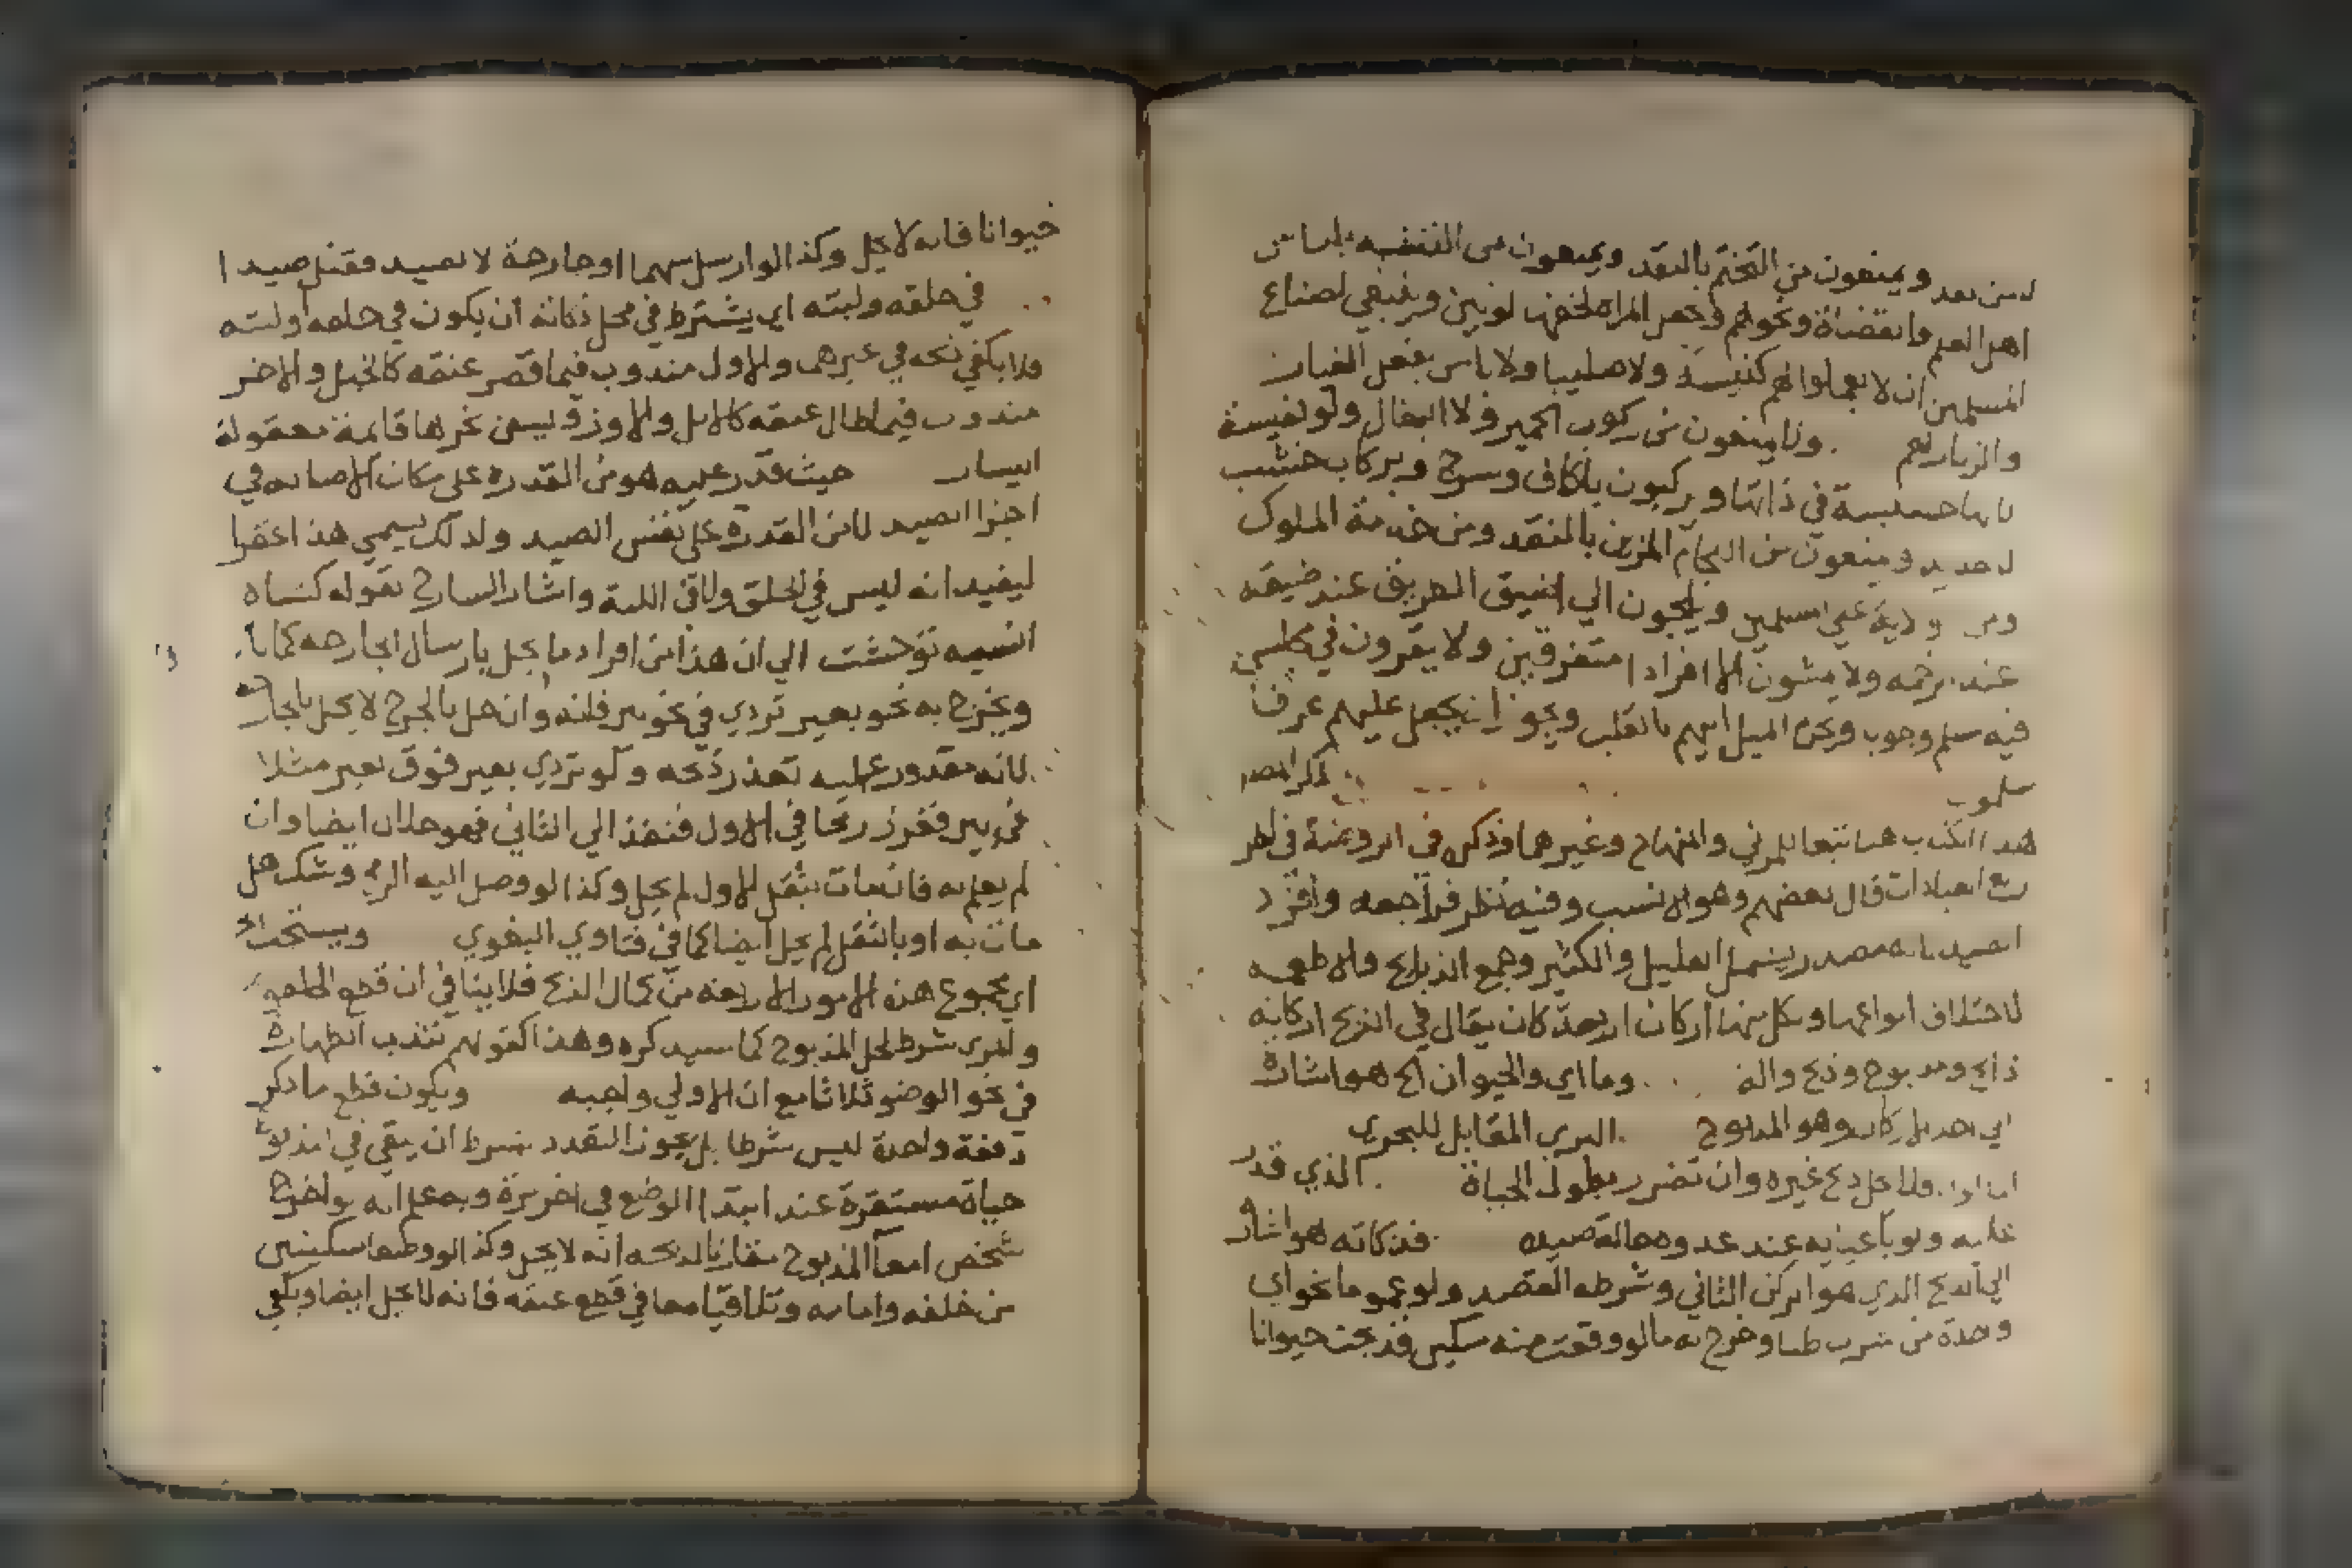 ويمنعون من التختم بالنقد ويمنعون من التشبه بلباس
اهل العلم والقضاة ونحوهم وتجعل المراة لخفها لونين وينبغي لصناع
المسلمين ان لا يعملوا لهم كنيسة ولا صليبا ولا باس بفعل الغيار
والزنار لهم ولا يمنعون من ركوب الحمير ولا البغال ولو نفيسة
لانها خسيسة في ذاتها ويركبون باكاف وسرج وبركاب خشب
لا حديد ويمنعون من اللجام المزين بالنقد ومن خدمة الملوك
ومن ولاية على المسلمين ويلجون الي اضيق الطريق عند ضيقه
عند زحمه ولا يمشون الا افرادا متفرقين ولا يقرون في مجلس
فيه مسلم وجوب وتحرم الميل اليهم بالقلب ويجوز ان يجعل عليهم عرفا
ذكر المصر
هذا الكتاب هنا تبعا للمزني والمنهاج وغيرهما وذكره في الروضة في اخر
ربع العبادات قال بعضهم وهو الانسب وفيه نظر فراجعه وافرد
الصيد لانه مصدر يشمل القليل والكثير وجمع الذبايح والاطعمه
لاختلاف انواعها وكل منها اركان اربعة كان يقال في الذبح اركانه
ذابح ومذبوح وذبح والة وما اي والحيوان الخ هو اشارة
الي احد الاركان وهو المذبوح البري المقابل للبحري
فلا يحل ذبح غيره وان تضرر بطول الحياة الذي قدر
عليه ولو باعيايه عند عدوه حالة صيده فذكاته هو اشارة
الي الذبح الذي هو الركن الثاني وشرطه القصد ولو عموما نحو اي
وحدة من سرب ظبا وخرج به ما لو وقعت منه سكين فذبحت حيوانا
حيوانا فانه لا يحل وكذا لو ارسل سهما او جارحة لا لصيد فقتل صيدا
في حلقه ولبته اي يشترط في محل ذكاته ان يكون في حلقه او لبته
ولا يكفي ذبحه في غيرهما والاول مندوب فيما قصر عنقه كالخيل والاخر
مندوب فيما طال عنقه كالابل والاوز ويسن نحرها قايمة معقولة
اليسار حيث قدر عليه هو من القدرة على مكان الاصابه في
اجزا الصيد لا من القدرة على نفس الصيد ولذلك يسمي هذا عقرا
ليفيد انه ليس في الحلق ولا في اللبة واشار الشارح بقوله كشاه
انسيه توحشت الي ان هذا من افراد ما يحل بارسال الجارحه كما
ويخرج به نحو بعير تردي في نحو بير فانه وان حل بالجرح لا يحل بالجارحة
لانه مقدور عليه تعذر ذبحه ولو تردي بعير فوق بعير مثلا
في بير فغرز رمحا في الاول فنفذ الي الثاني فهو حلال ايضا وان
لم يعلم به فان مات بثقل الاول لم يحل وكذا لو وصل اليه الرمح وشك هل
مات به او بالثقل لم يحل ايضا كما في فتاوي البغوي ويستحب
اي مجموع هذه الامور الاربعة من كمال الذبح فلا ينافي ان قطع الحلقوم
والمري شرط لحل المذبوح كما سيذكره وهذا كقولهم تندب الطهارة
في نحو الوضو ثلاثا مع ان الاولي واجبه ويكون قطع ما ذكر
دفعة واحدة ليس شرطا بل يجوز التعدد بشرط ان يبقي في المذبوح
حياة مستقرة عند ابتدا الوضع في اخر مرة وبه علم انه لو اخرج
شخص امعا المذبوح مقارنا لذبحه انه لا يحل وكذا لو قطعا بسكينين
من خلفه وامامه وتلاقيا معا في قطع عنقه فانه لا يحل ايضا ويكفي